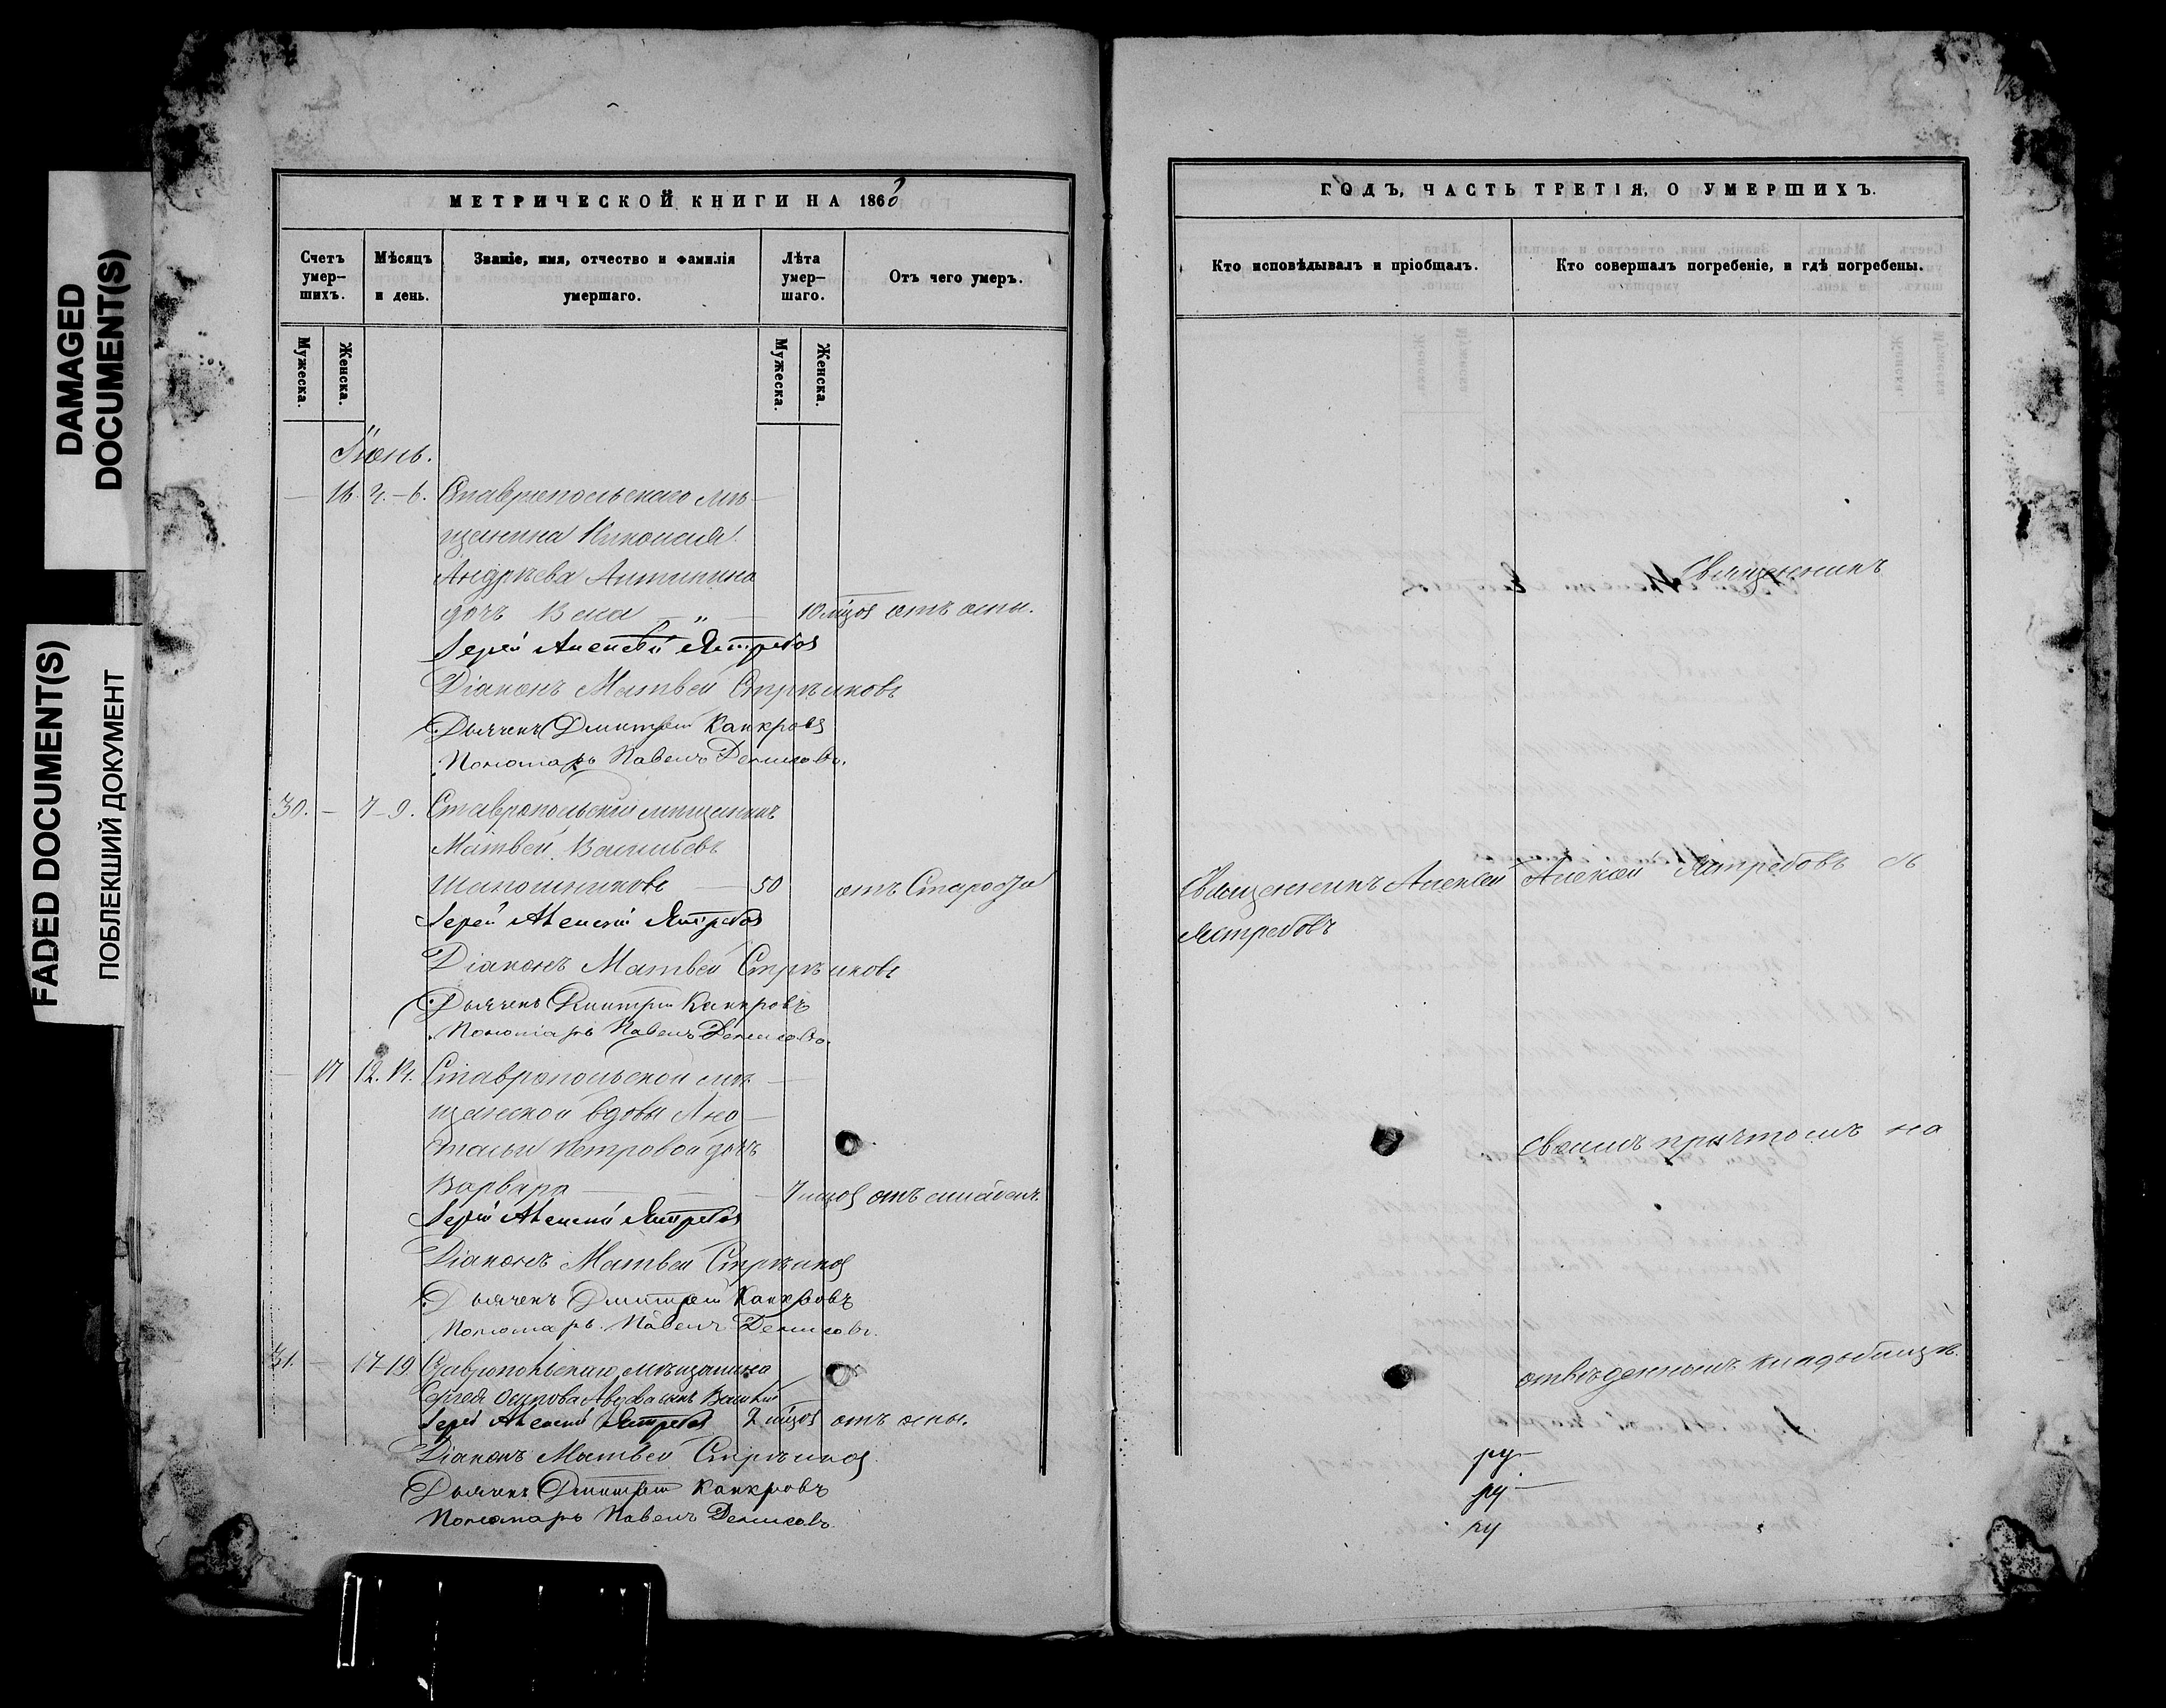 DAMAGED
DOCUMENT(S)
FADED DOCUMENT(S)
ПОБЛЕКШИЙ ДОКУМЕНТ
МЕТРИЧЕСКОЙ КНИГИ НА 186
Счетъ умер-шихъ.
Мѣсяцъ и день.
Званіе, имя, отчество и фамилія умершаго.
Лѣта умер-шаго.
Отъ чего умеръ.
Мужеска.
Женска.
Мужеска.
Женска.
Іюнь.
— 16. 4.–6. Ставропольскаго мѣ-
щанина Николая
Андрѣева Антипина
дочь — „ — 10 мцов отъ оспы.
Іерей Алексѣй Ястребов
Діаконъ Матвей Стрѣлковъ
Дьячекъ Дмитрий Канкровъ
Пономарь Павелъ Денисовъ.
30. — 7–9. Ставропольскій мѣщанинъ
Матвей Васильевъ
Шапошниковъ — 50 отъ Старости
Іерей Алексѣй Ястребов
Діаконъ Матвей Стрѣлковъ
Дьячекъ Дмитрий Канкровъ
Пономарь Павелъ Денисовъ.
— 17 12. 14. Ставропольской мѣ-
щанской вдовы Ана-
стасьи Петровой дочь
Варвара — 7 мцов отъ слабости.
Іерей Алексѣй Ястребов
Діаконъ Матвей Стрѣлков
Дьячекъ Дмитрий Канкровъ
Пономарь Павелъ Денисовъ.
31. — 17–19. Ставропольскаго мѣщанина
Сергея Осипова сынъ Василій
Іерей Алексѣй Ястребов 2 мцов отъ оспы.
Діаконъ Матвей Стрѣлков.
Дьячекъ Дмитрий Канкровъ
Пономарь Павелъ Денисовъ.
ГОДЪ, ЧАСТЬ ТРЕТІЯ, О УМЕРШИХЪ.
Кто исповѣдывалъ и пріобщалъ.
Кто совершалъ погребеніе, и гдѣ погребены.
Священникъ
Священникъ Алексѣй
Ястребовъ
Алексѣй Ястребовъ съ
своимъ причтомъ на
отвѣденномъ кладбищѣ.
ру—
ру—
ру